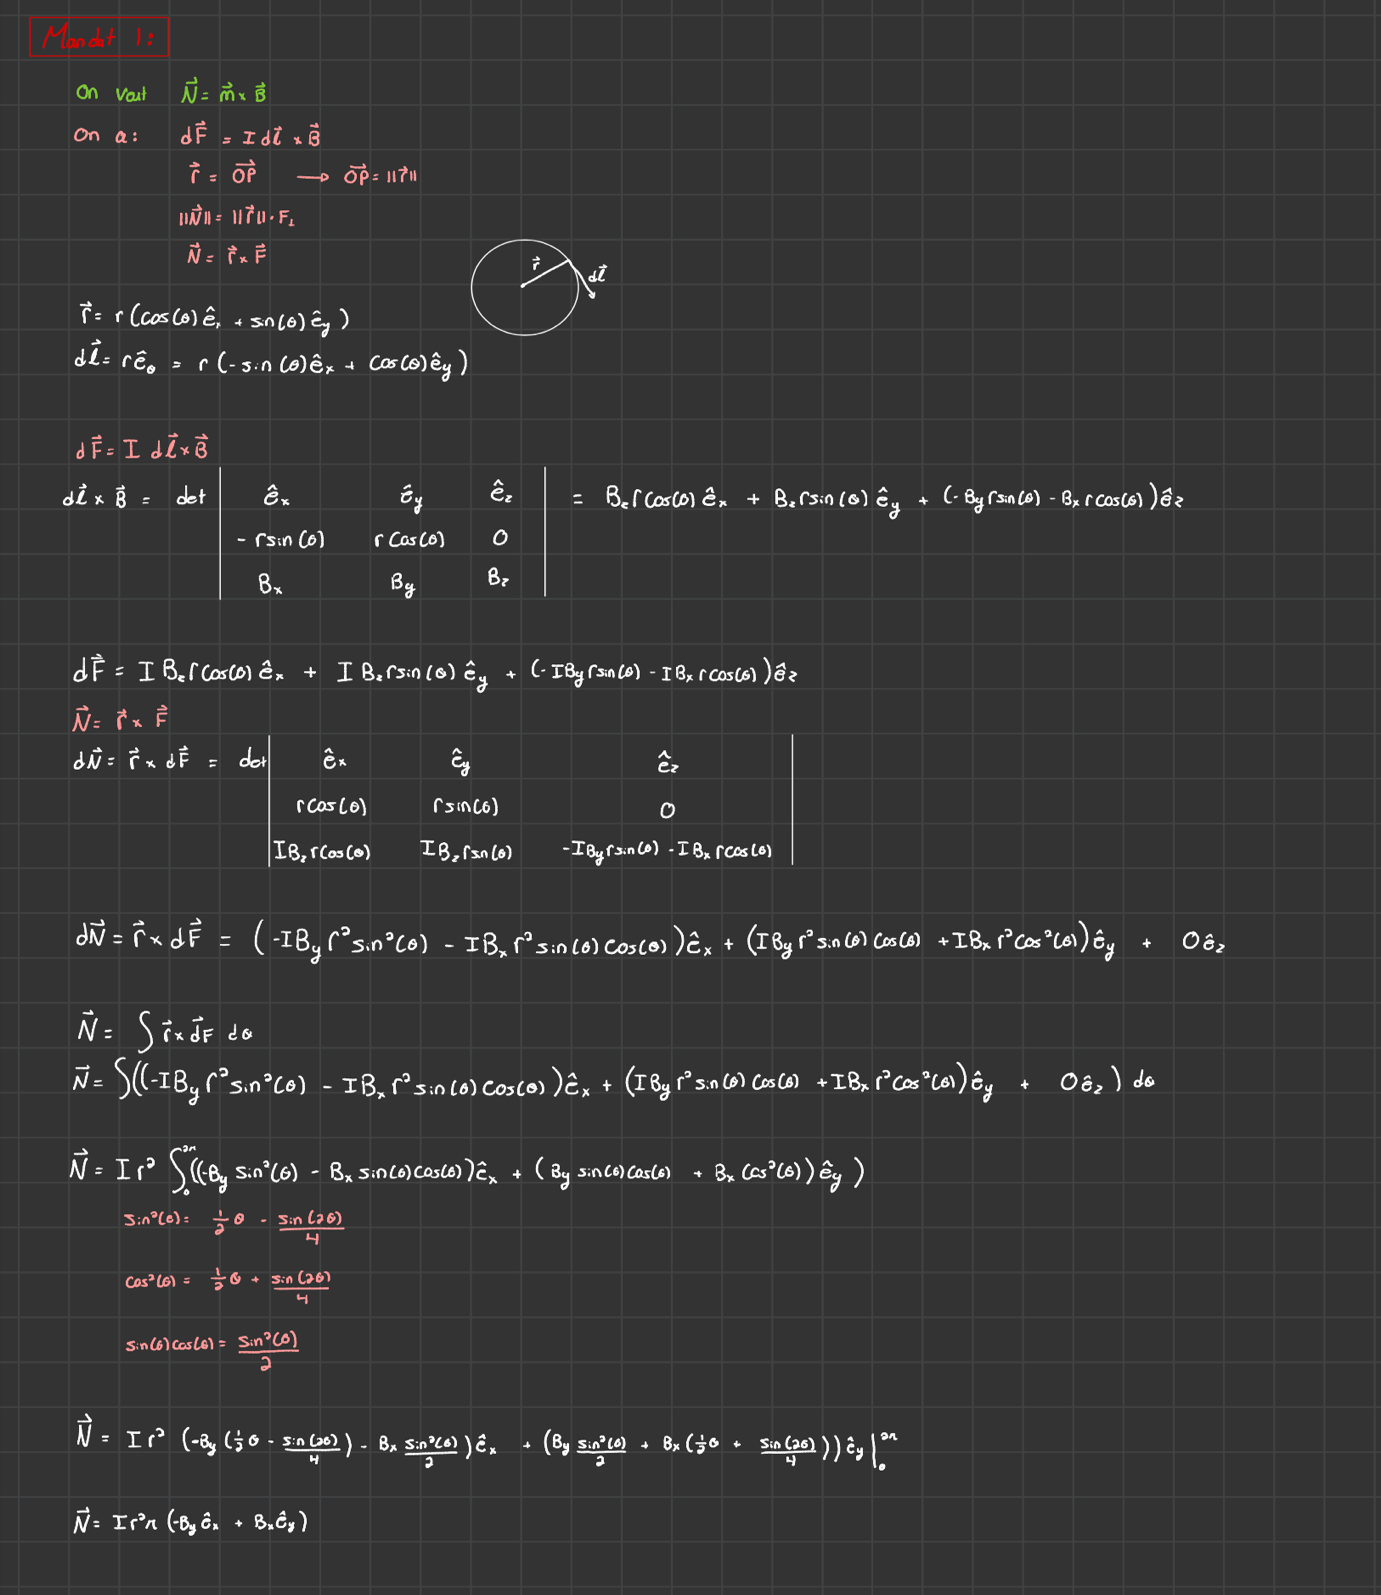 Mandat 1:
On veut N⃗ = m⃗ × B⃗
On a: dF⃗ = I dl⃗ × B⃗
r⃗ = OP⃗ → OP⃗ = ||r⃗||
||N⃗|| = ||r⃗|| · F⊥
N⃗ = r⃗ × F⃗
r⃗
dl⃗
r⃗ = r (cos(θ) êₓ + sin(θ) ê_y)
dl⃗ = r ê_θ = r (-sin(θ) êₓ + cos(θ) ê_y)
dF⃗ = I dl⃗ × B⃗
dl⃗ × B⃗ = det | êₓ ê_y ê_z | = B_z r cos(θ) êₓ + B_z r sin(θ) ê_y + (-B_y r sin(θ) - Bₓ r cos(θ)) ê_z
- r sin(θ) r cos(θ) 0
Bₓ B_y B_z
dF⃗ = I B_z r cos(θ) êₓ + I B_z r sin(θ) ê_y + (-I B_y r sin(θ) - I Bₓ r cos(θ)) ê_z
N⃗ = r⃗ × F⃗
dN⃗ = r⃗ × dF⃗ = det | êₓ ê_y ê_z |
r cos(θ) r sin(θ) 0
I B_z r cos(θ) I B_z r sin(θ) -I B_y r sin(θ) - I Bₓ r cos(θ)
dN⃗ = r⃗ × dF⃗ = (-I B_y r² sin²(θ) - I Bₓ r² sin(θ) cos(θ)) êₓ + (I B_y r² sin(θ) cos(θ) + I Bₓ r² cos²(θ)) ê_y + 0 ê_z
N⃗ = ∫ r⃗ × dF⃗ dθ
N⃗ = ∫((-I B_y r² sin²(θ) - I Bₓ r² sin(θ) cos(θ)) êₓ + (I B_y r² sin(θ) cos(θ) + I Bₓ r² cos²(θ)) ê_y + 0 ê_z) dθ
N⃗ = I r² ∫₀^{2π} ((-B_y sin²(θ) - Bₓ sin(θ) cos(θ)) êₓ + (B_y sin(θ) cos(θ) + Bₓ cos²(θ)) ê_y)
sin²(θ) = 1/2 θ - sin(2θ)/4
cos²(θ) = 1/2 θ + sin(2θ)/4
sin(θ) cos(θ) = sin²(θ)/2
N⃗ = I r² (-B_y (1/2 θ - sin(2θ)/4) - Bₓ sin²(θ)/2) êₓ + (B_y sin²(θ)/2 + Bₓ (1/2 θ + sin(2θ)/4)) ê_y |₀^{2π}
N⃗ = I r² π (-B_y êₓ + Bₓ ê_y)